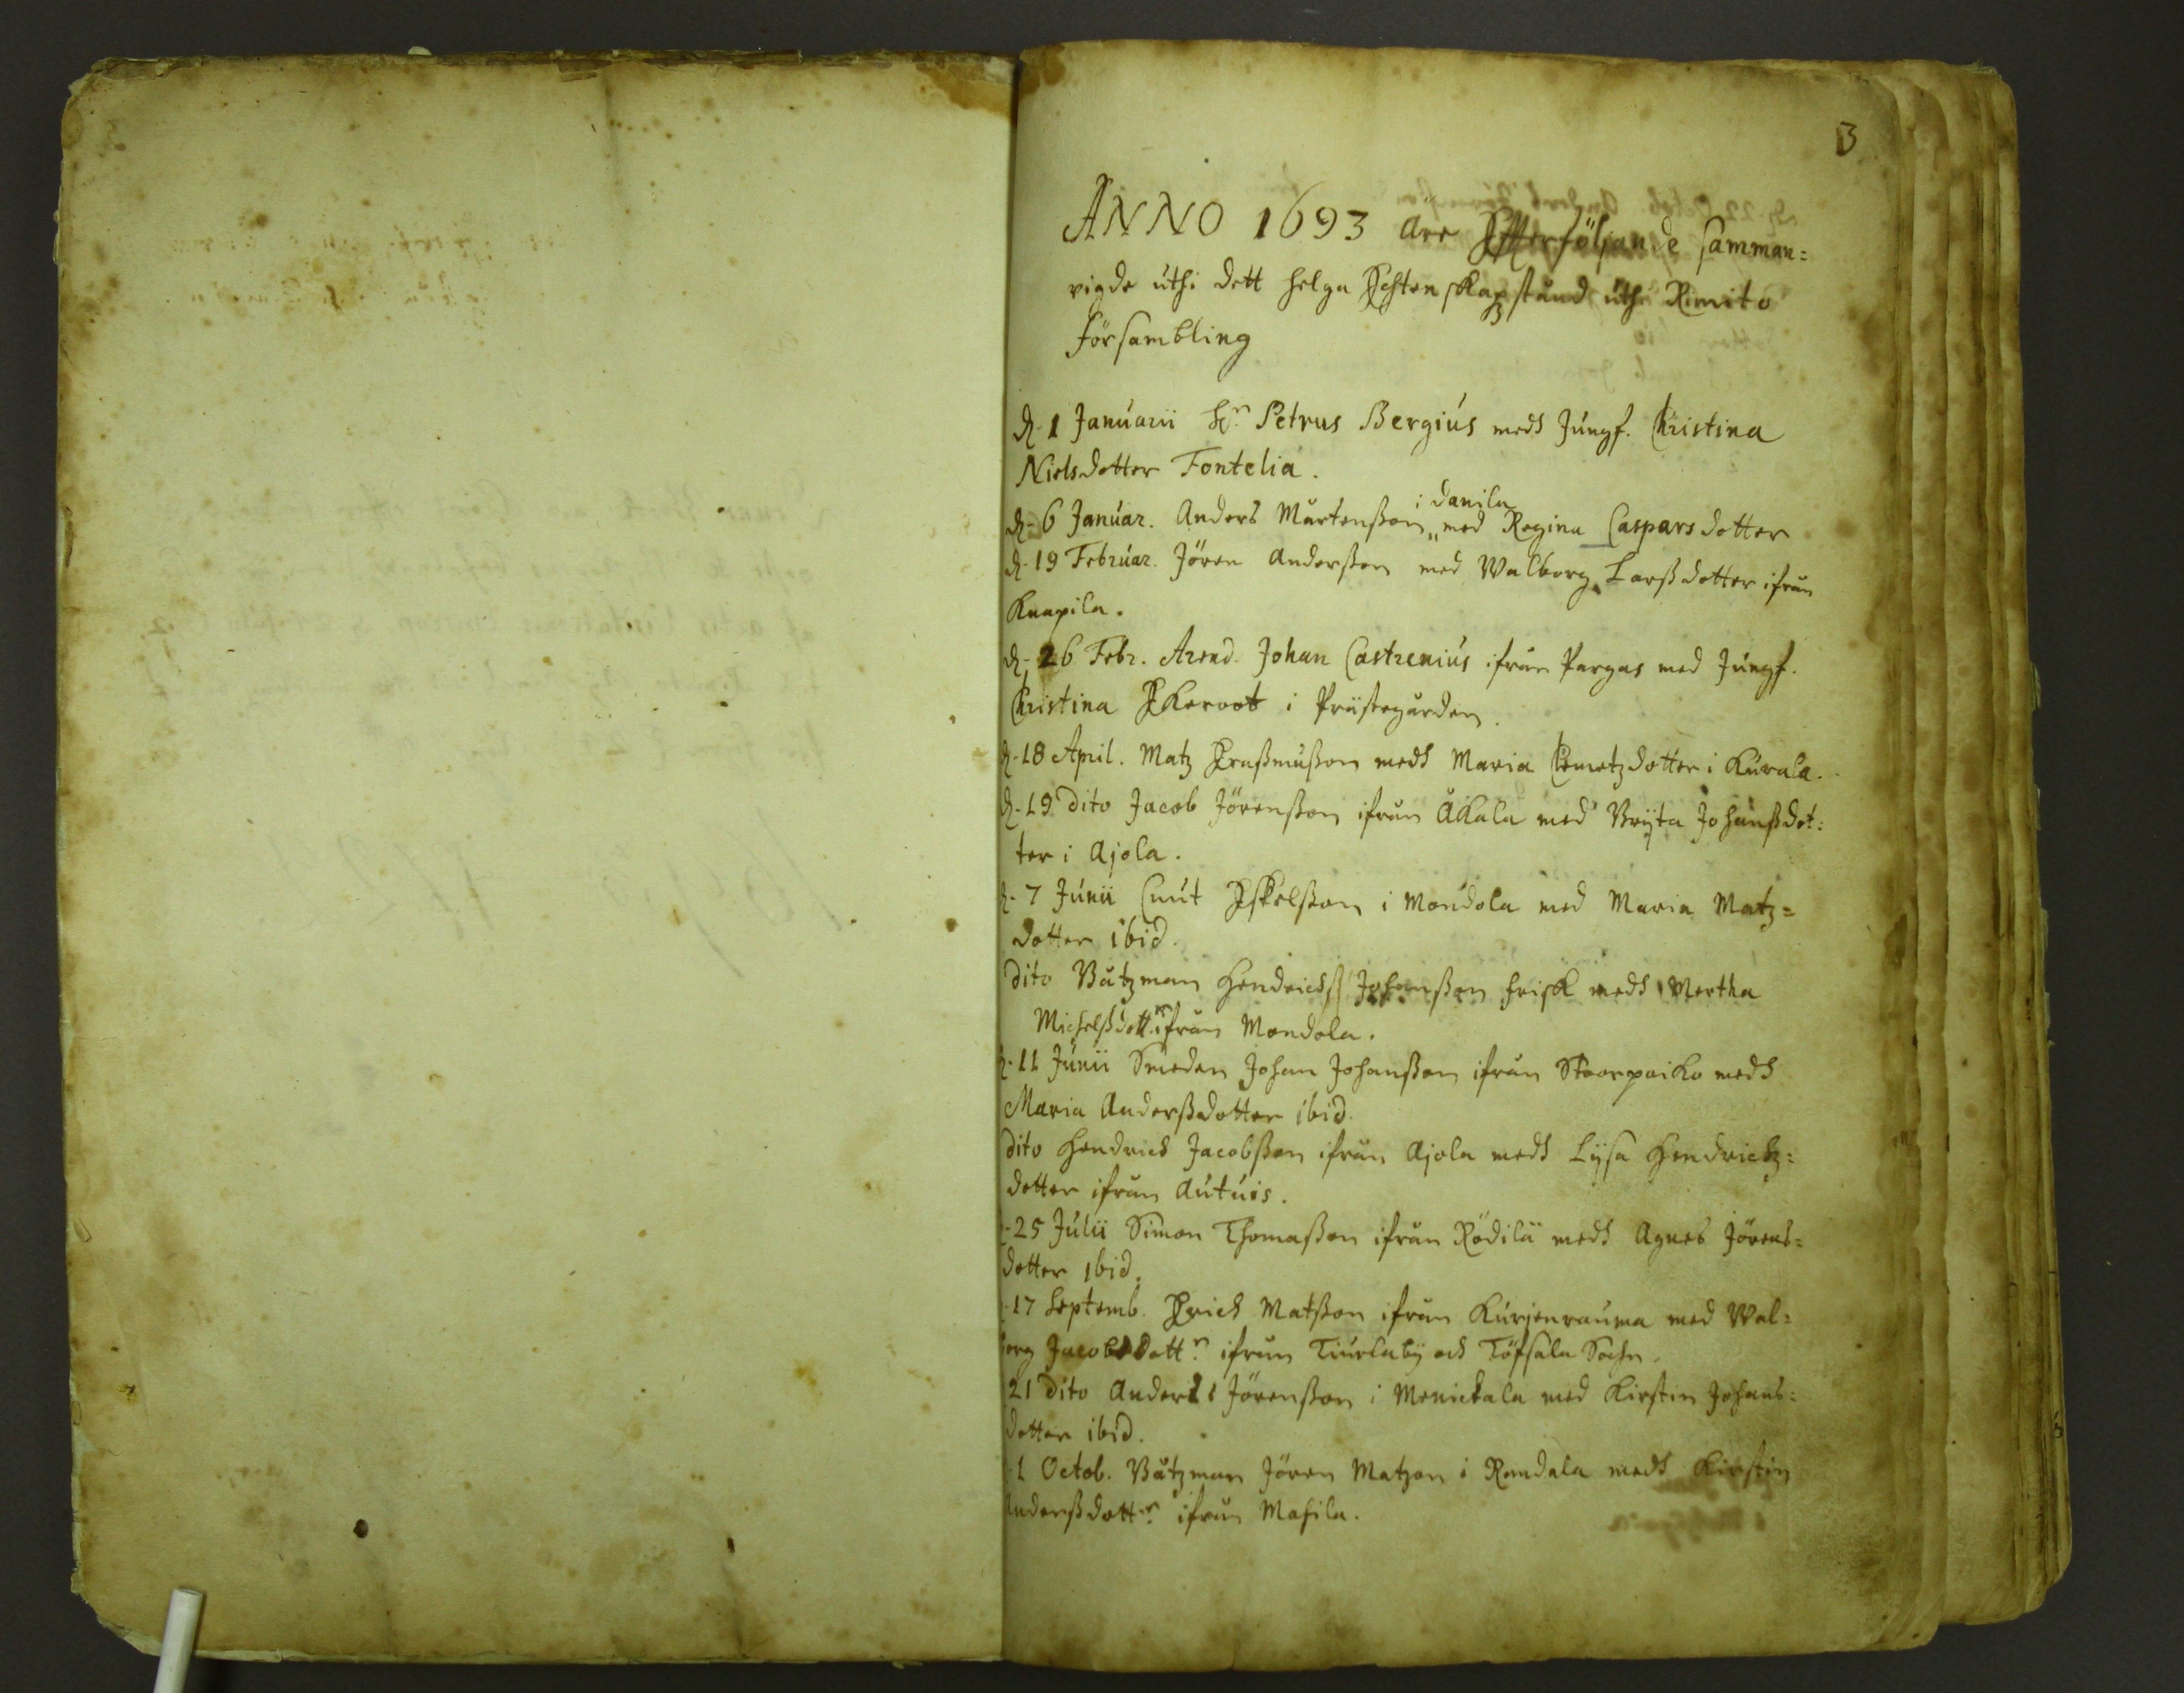 3
ANNO 1693 äre Efterföljande samman=
vigde uthi dett helga Echtenskapsstånd uthi Rimito
Försambling
d. 1 Januarii Hr. Petrus Bergius medh Jungf. Christina
Nielsdotter Fontelia.
i Danila
d. 6 Januar. Anders Mårtensson „ med Regina Caspars dotter
d. 19 Februar. Jören Andersson med Walborg Larssdotter ifrån
Knapila.
d. 26 Febr. Arend. Johan Castrenius ifrån Pargas med Jungf.
Christina Ekeroot i Prästegården.
d. 18 April. Matz Erassmusson medh Maria Clemetzdotter i Kurala.
d. 19 Dito Jacob Jörensson ifrån Åkala med Bryta Johanssdot=
ter i Ajola.
d. 7 Junii Cnut Eskelsson i Mondola med Maria Matz=
dotter ibid.
Dito Båtzman Hendrich Johansson frisk medh Mertha
Michelssdottr ifrån Mondola.
d. 11 Junii Smeden Johan Johansson ifrån Stoorpaiko medh
Maria Anderssdotter ibid.
Dito Hendrich Jacobsson ifrån Ajola medh Lysa Hendrichz=
dotter ifrån Autuis.
25 Julii Simon Thomasson ifrån Rödilä medh Agnes Jörens=
dotter ibid.
17 Septemb. Erich Matsson ifrån Kurjenrauma med Wal=
borg Jacobsdottr. ifrån Tiurlaby och Töfsala Sochn.
21 Dito Anders Jörensson i Menickala med Kirstin Johans=
dotter ibid.
1 Octob. Båtzman Jören Matzon i Randala medh Kirstin
Anderssdottr. ifrån Masila.